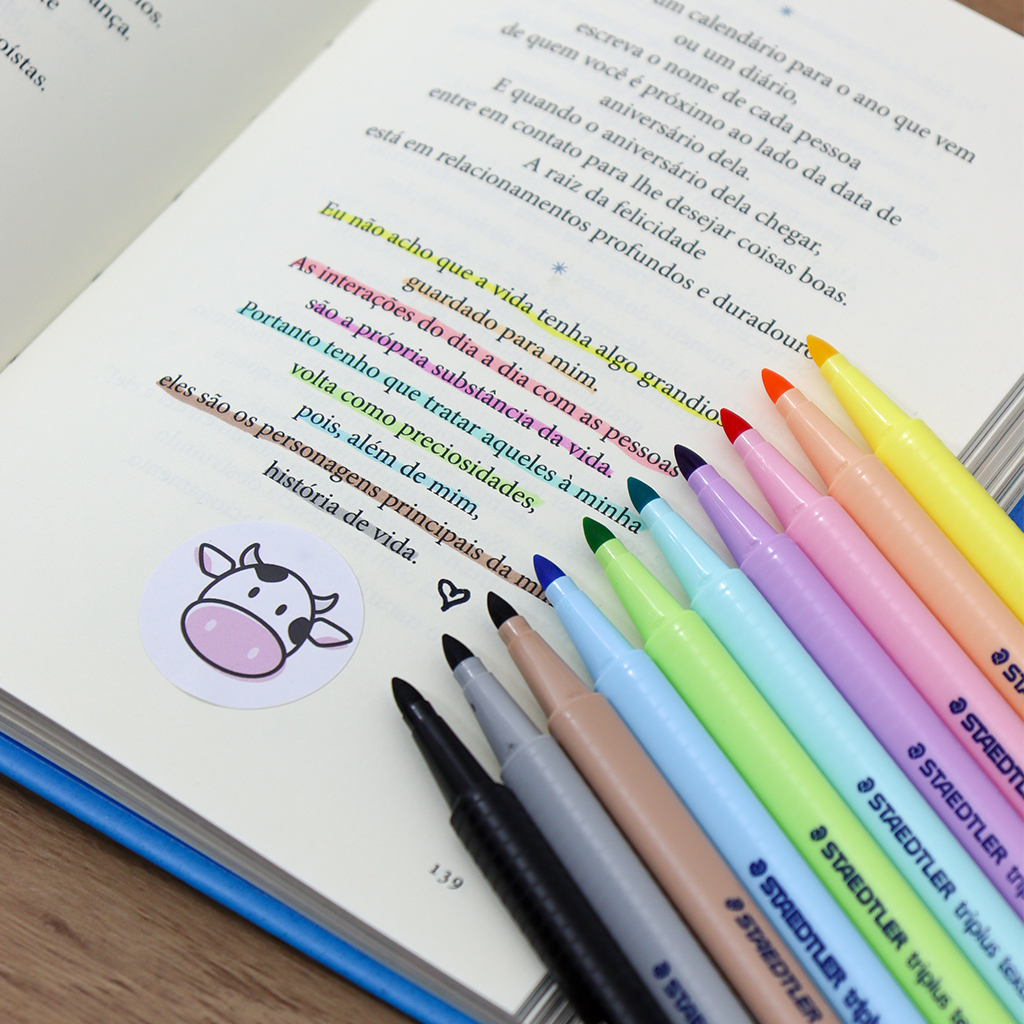 ios.
ança,
oístas.
um calendário para o ano que vem
ou um diário,
escreva o nome de cada pessoa
de quem você é próximo ao lado da data de
aniversário dela.
E quando o aniversário dela chegar,
entre em contato para lhe desejar coisas boas.
A raiz da felicidade
está em relacionamentos profundos e duradouro
Eu não acho que a vida tenha algo grandios
guardado para mim.
As interações do dia a dia com as pessoas
são a própria substância da vida.
Portanto tenho que tratar aqueles à minha
volta como preciosidades,
pois, além de mim,
eles são os personagens principais da mi
história de vida.
139
STAEDTLER
STAEDTLER trip
STAEDTLER triplus tex
STAEDTLER triplus te
STAEDTLER tripl
STAEDTLER
STAED